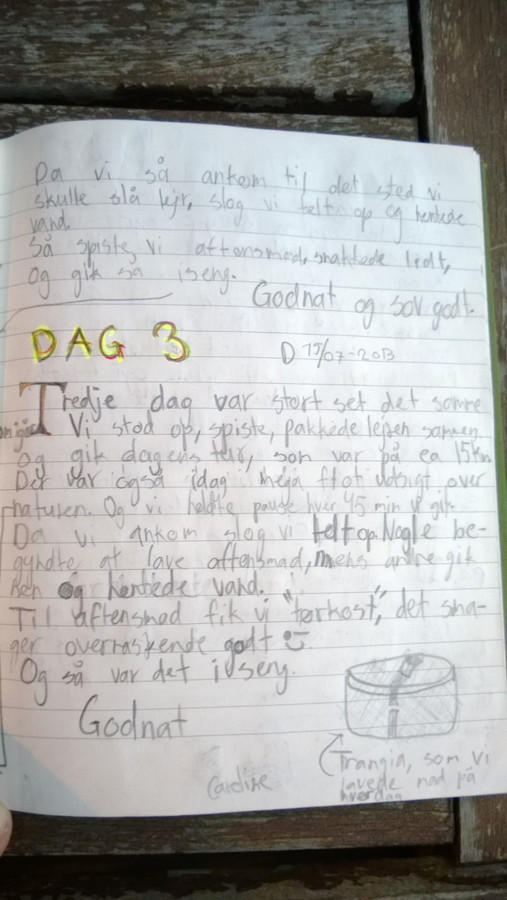 Da vi så ankom til det sted vi
skulle slå lejr, slog vi telt op og hentede
vand.
Så spiste vi aftensmad, snakkede lidt,
og gik så iseng.
Godnat og sov godt.
DAG 3
D 15/07-2013
Tredje dag var stort set det samme
Vi stod op, spiste, pakkede lejren sammen
og gik dagens tur, som var på ca 15km
Der var også idag mega flot udsigt over
naturen. Og vi holdte pause hver 45 min vi gik.
Da vi ankom slog vi telt op. Nogle be-
gyndte at lave aftensmad, mens andre gik
hen og hentede vand.
Til aftensmad fik vi "tørkost", det sma-
ger overraskende godt
Og så var det iseng.
Godnat
Trangia, som vi
lavede mad på
hverdag
Caroline